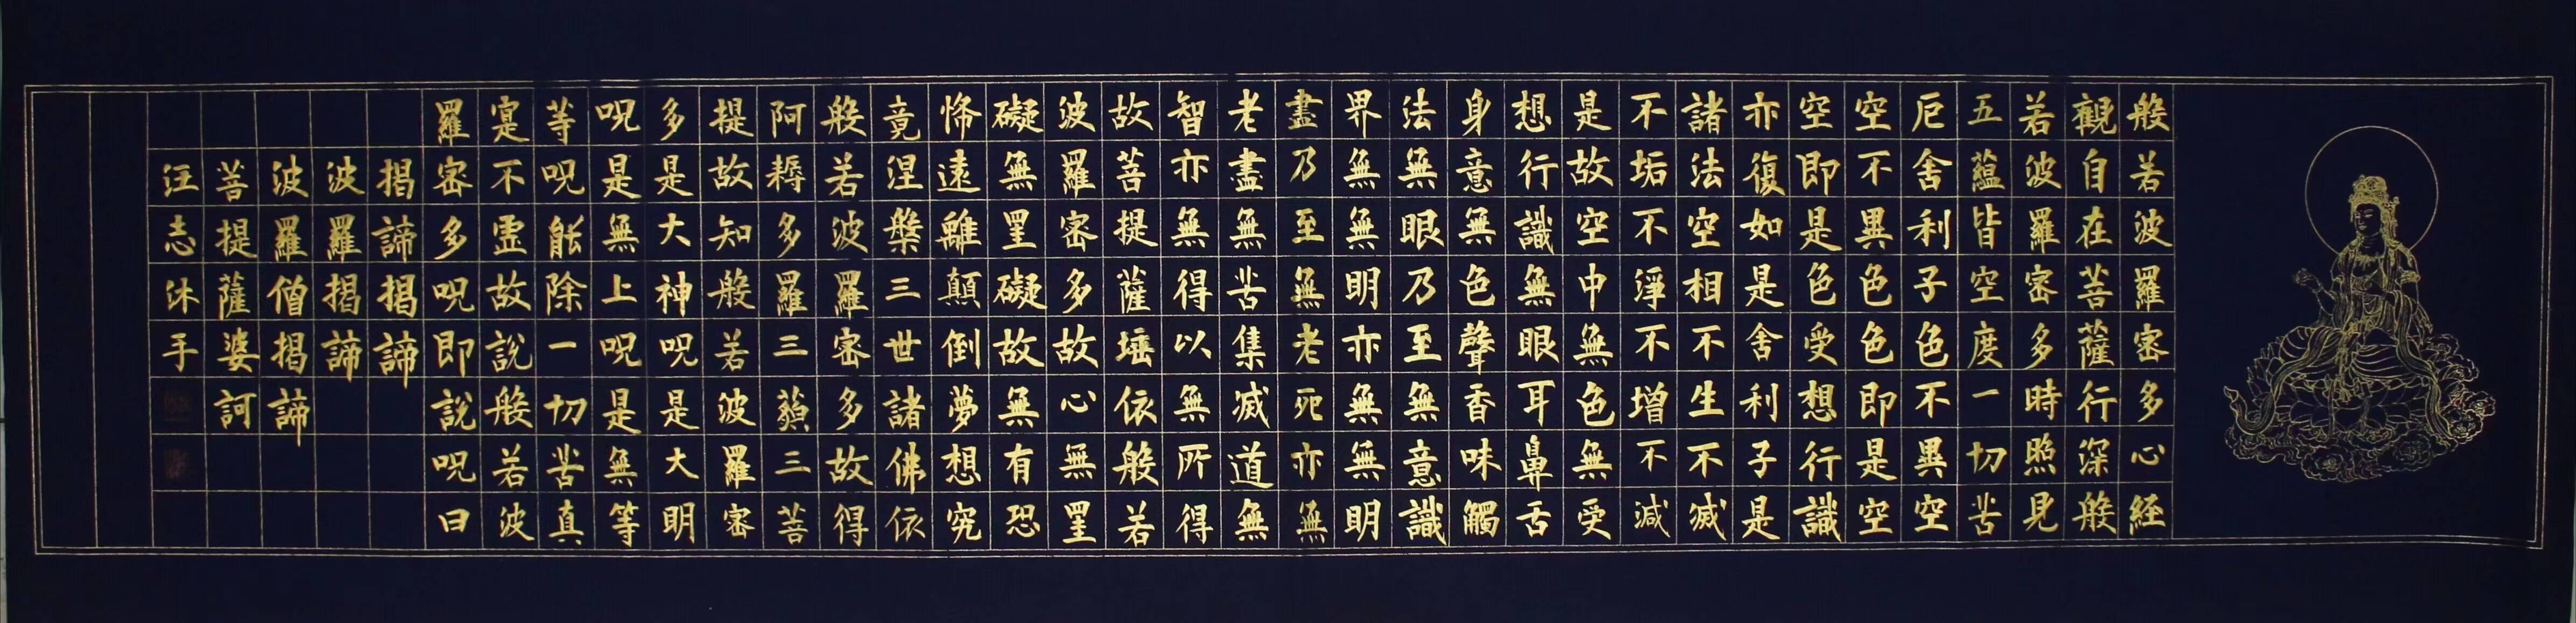 般若波羅密多心経
觀自在菩薩行深般
若波羅密多時照見
五蘊皆空度一切苦
厄舍利子色不異空
空不異色色即是空
空即是色受想行識
亦復如是舍利子是
諸法空相不生不滅
不垢不淨不增不減
是故空中無色無受
想行識無眼耳鼻舌
身意無色聲香味觸
法無眼乃至無意識
界無無明亦無無明
盡乃至無老死亦無
老盡無苦集滅道無
智亦無得以無所得
故菩提薩埵依般若
波羅密多故心無罣
礙無罣礙故無有恐
怖遠離顛倒夢想究
竟涅槃三世諸佛依
般若波羅密多故得
阿耨多羅三藐三菩
提故知般若波羅密
多是大神呪是大明
呪是無上呪是無等
等呪能除一切苦真
寔不虛故說般若波
羅密多呪即說呪曰
揭諦揭諦
波羅揭諦
波羅僧揭諦
菩提薩婆訶
汪志沐手